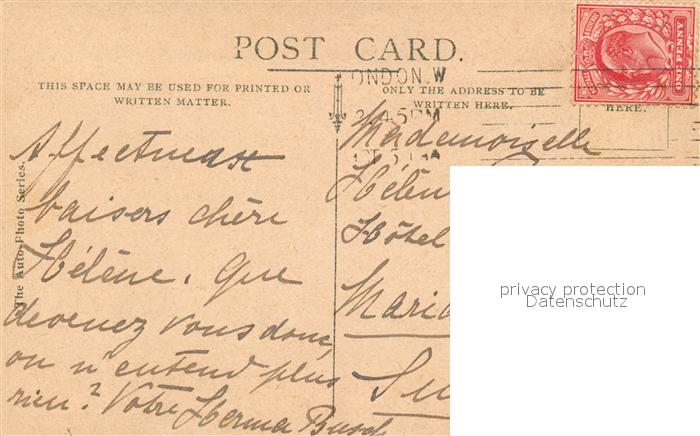 POST CARD.
THIS SPACE MAY BE USED FOR PRINTED OR
WRITTEN MATTER.
ONLY THE ADDRESS TO BE
WRITTEN HERE.
HERE.
ONDON.W
2.45PM
ONE PENNY
The Auto-Photo Series.
baisers chère
Hélène. Que
devenez vous donc,
on n'entend plus
rien? Votre Herma Busch
Mademoiselle
Hélèn
Hôtel
Maria
Su
privacy protection
Datenschutz